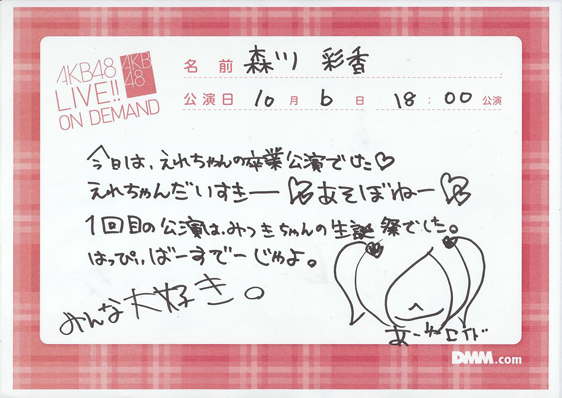 AKB48
LIVE!!
ON DEMAND
AKB
48
名前 森川 彩香
公演日 10月 6日 18:00公演
今日は、えれちゃんの卒業公演でした♡
えれちゃんだいすきー♡あそぼねー♡
1回目の公演は、みつきちゃんの生誕祭でした。
はっぴぃばーすでーじゃよ。
みんな大好き。
DMM.com